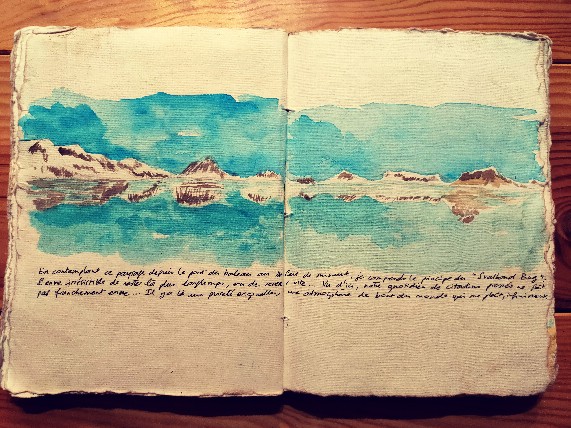 En contemplant ce paysage depuis le pont du bateau au soleil de minuit, je comprends le principe du "Svalbard Bug".
L'envie irrésistible de rester là plus longtemps, ou de revenir vite... Vu d'ici, notre quotidien de citadins pressés ne fait
pas franchement envie... Il y a là une pureté originelle, une atmosphère de bout du monde qui me plaît infiniment.